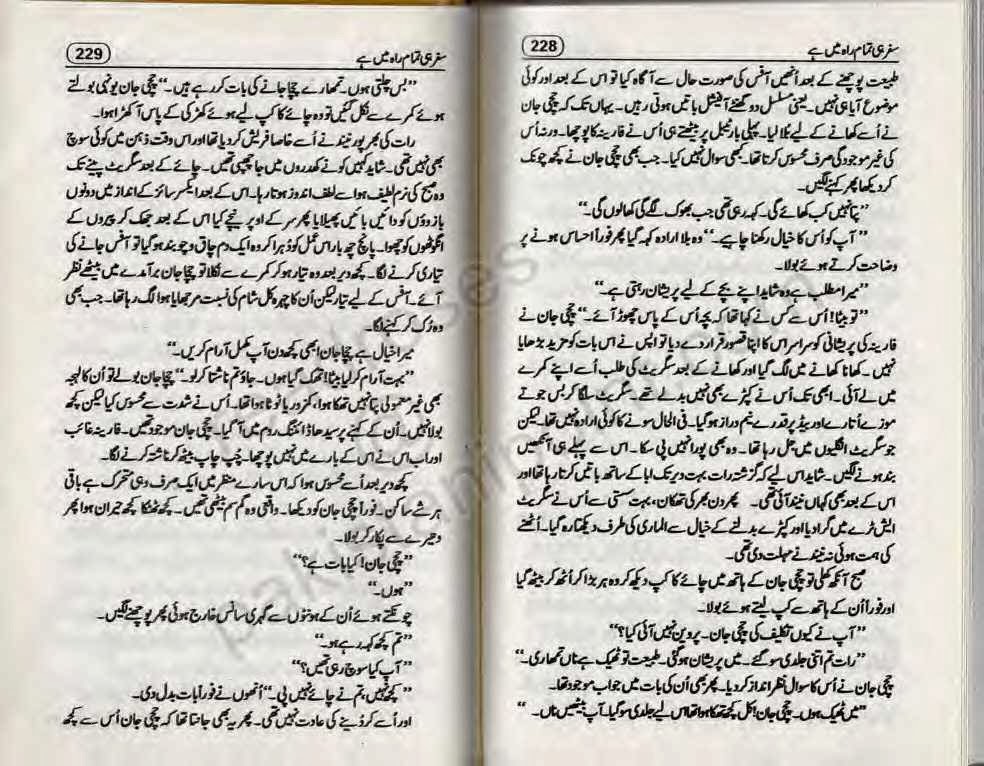 228
سفر ہی تمام راہ میں ہے
طبیعت پوچھنے کے بعد انھیں آفس کی صورت حال سے آگاہ کیا تو اس کے بعد اور کوئی
موضوع آیا ہی نہیں۔ یعنی مسلسل دو گھنٹے آفیشل باتیں ہوتی رہیں۔ یہاں تک کہ چچی جان
نے اُسے کھانے کے لیے بُلا لیا۔ پہلی بار ٹیبل پر بیٹھتے ہی اس نے فارینہ کا پوچھا۔ ورنہ اُس
کی غیر موجودگی صرف محسوس کرتا تھا۔ کبھی سوال نہیں کیا۔ جب بھی چچی جان نے کچھ چونک
کر دیکھا پھر کہنے لگیں۔
”پتا نہیں کب کھائے گی۔ کہہ رہی تھی جب بھوک لگے گی کھا لوں گی۔“
”آپ کو اُس کا خیال رکھنا چاہیے۔“ وہ بلا ارادہ کہہ گیا پھر فوراً احساس ہونے پر
وضاحت کرتے ہوئے بولا۔
”میرا مطلب ہے وہ شاید اپنے بچے کے لیے پریشان رہتی ہے۔“
”تو بیٹا! اُس سے کس نے کہا تھا کہ بچہ اُس کے پاس چھوڑ آئے۔“ چچی جان نے
فارینہ کی پریشانی کو سراسر اس کا اپنا قصور قرار دے دیا تو اس نے اس بات کو مزید بڑھایا
نہیں۔ کھانا کھانے میں لگ گیا اور کھانے کے بعد سگریٹ کی طلب اُسے اپنے کمرے
میں لے آئی۔ ابھی تک اُس نے کپڑے بھی نہیں بدلے تھے۔ سگریٹ سلگا کر بس جوتے
موزے اُتارے اور بیڈ پر قدرے نیم دراز ہو گیا۔ فی الحال سونے کا کوئی ارادہ نہیں تھا۔ لیکن
جو سگریٹ انگلیوں میں جل رہا تھا۔ وہ بھی پورا نہیں پی سکا۔ اس سے پہلے ہی آنکھیں
بند ہونے لگیں۔ شاید اس لیے کہ گزشتہ رات بہت دیر تک ابا کے ساتھ باتیں کرتا رہا تھا اور
اس کے بعد بھی کہاں نیند آئی تھی۔ پھر دن بھر کی تھکان، بہت سستی سے اُس نے سگریٹ
ایش ٹرے میں گرا دیا اور کپڑے بدلنے کے خیال سے الماری کی طرف دیکھتا رہ گیا۔ اُٹھنے
کی ہمت ہوئی نہ نیند نے مہلت دی تھی۔
صبح آنکھ کھلی تو چچی جان کے ہاتھ میں چائے کا کپ دیکھ کر وہ ہڑبڑا کر اُٹھ کر بیٹھ گیا
اور فوراً اُن کے ہاتھ سے کپ لیتے ہوئے بولا۔
”آپ نے کیوں تکلیف کی چچی جان۔ پروین نہیں آئی کیا؟“
”رات تم اتنی جلدی سو گئے۔ میں پریشان ہو گئی۔ طبیعت تو ٹھیک ہے ناں تمھاری۔“
چچی جان نے اُس کا سوال نظر انداز کر دیا۔ پھر بھی اُن کی بات میں جواب موجود تھا۔
”میں ٹھیک ہوں۔ چچی جان! کل کچھ تھکا ہوا تھا اس لیے جلدی سو گیا۔ آپ بیٹھیں ناں۔“
229
سفر ہی تمام راہ میں ہے
”بس چلتی ہوں۔ تمھارے چچا جانے کی بات کر رہے ہیں۔“ چچی جان یونہی بولتے
ہوئے کمرے سے نکل گئیں تو وہ چائے کا کپ لیے ہوئے کھڑکی کے پاس آ کھڑا ہوا۔
رات کی بھرپور نیند نے اُسے خاصا فریش کر دیا تھا اور اس وقت ذہن میں کوئی سوچ
بھی نہیں تھی۔ شاید کہیں کونے کھدروں میں جا چھپی تھیں۔ چائے کے بعد سگریٹ پینے تک
وہ صبح کی نرم لطیف ہوا سے لطف اندوز ہوتا رہا۔ اس کے بعد ایکسرسائز کے انداز میں دونوں
بازوؤں کو دائیں بائیں پھیلایا پھر سر کے اوپر نیچے کیا اس کے بعد جھک کر پیروں کے
انگوٹھوں کو چھوا۔ پانچ چھ بار اس عمل کو دُہرا کر وہ ایک دم چاق و چوبند ہو گیا تو آفس جانے کی
تیاری کرنے لگا۔ کچھ دیر بعد وہ تیار ہو کر کمرے سے نکلا تو چچا جان برآمدے میں بیٹھے نظر
آئے۔ آفس کے لیے تیار لیکن اُن کا چہرہ کل شام کی نسبت مرجھایا ہوا لگ رہا تھا۔ جب بھی
وہ رُک کر کہنے لگا۔
”میرا خیال ہے چچا جان ابھی کچھ دن آپ مکمل آرام کریں۔“
”بہت آرام کر لیا بیٹا! تھک گیا ہوں۔ جاؤ تم ناشتا کر لو۔“ چچا جان بولے تو اُن کا لہجہ
بھی غیر معمولی پتا نہیں تھکا ہوا، کمزور یا ٹوٹا ہوا تھا۔ اُس نے شدت سے محسوس کیا لیکن کچھ
بولا نہیں۔ اُن کے کہنے پر سیدھا ڈائننگ روم میں آ گیا۔ چچی جان موجود تھیں۔ فارینہ غائب
اور اب اس نے اس کے بارے میں نہیں پوچھا۔ چپ چاپ بیٹھ کر ناشتہ کرنے لگا۔
کچھ دیر بعد اُسے محسوس ہوا کہ اس سارے منظر میں ایک صرف وہی متحرک ہے باقی
ہر شے ساکن۔ فوراً چچی جان کو دیکھا۔ واقعی وہ گم سم بیٹھی تھیں۔ کچھ ٹھٹکا کچھ حیران ہوا پھر
دھیرے سے پکار کر بولا۔
”چچی جان! کیا بات ہے؟“
”ہوں۔“
چونکتے ہوئے اُن کے ہونٹوں سے گہری سانس خارج ہوئی پھر پوچھنے لگیں۔
”تم کچھ کہہ رہے ہو۔“
”آپ کیا سوچ رہی تھیں؟“
”کچھ نہیں، تم نے چائے نہیں پی۔“ اُنھوں نے فوراً بات بدل دی۔
اور اُسے کریدنے کی عادت نہیں تھی۔ پھر یہ بھی جانتا تھا کہ چچی جان اُس سے کچھ